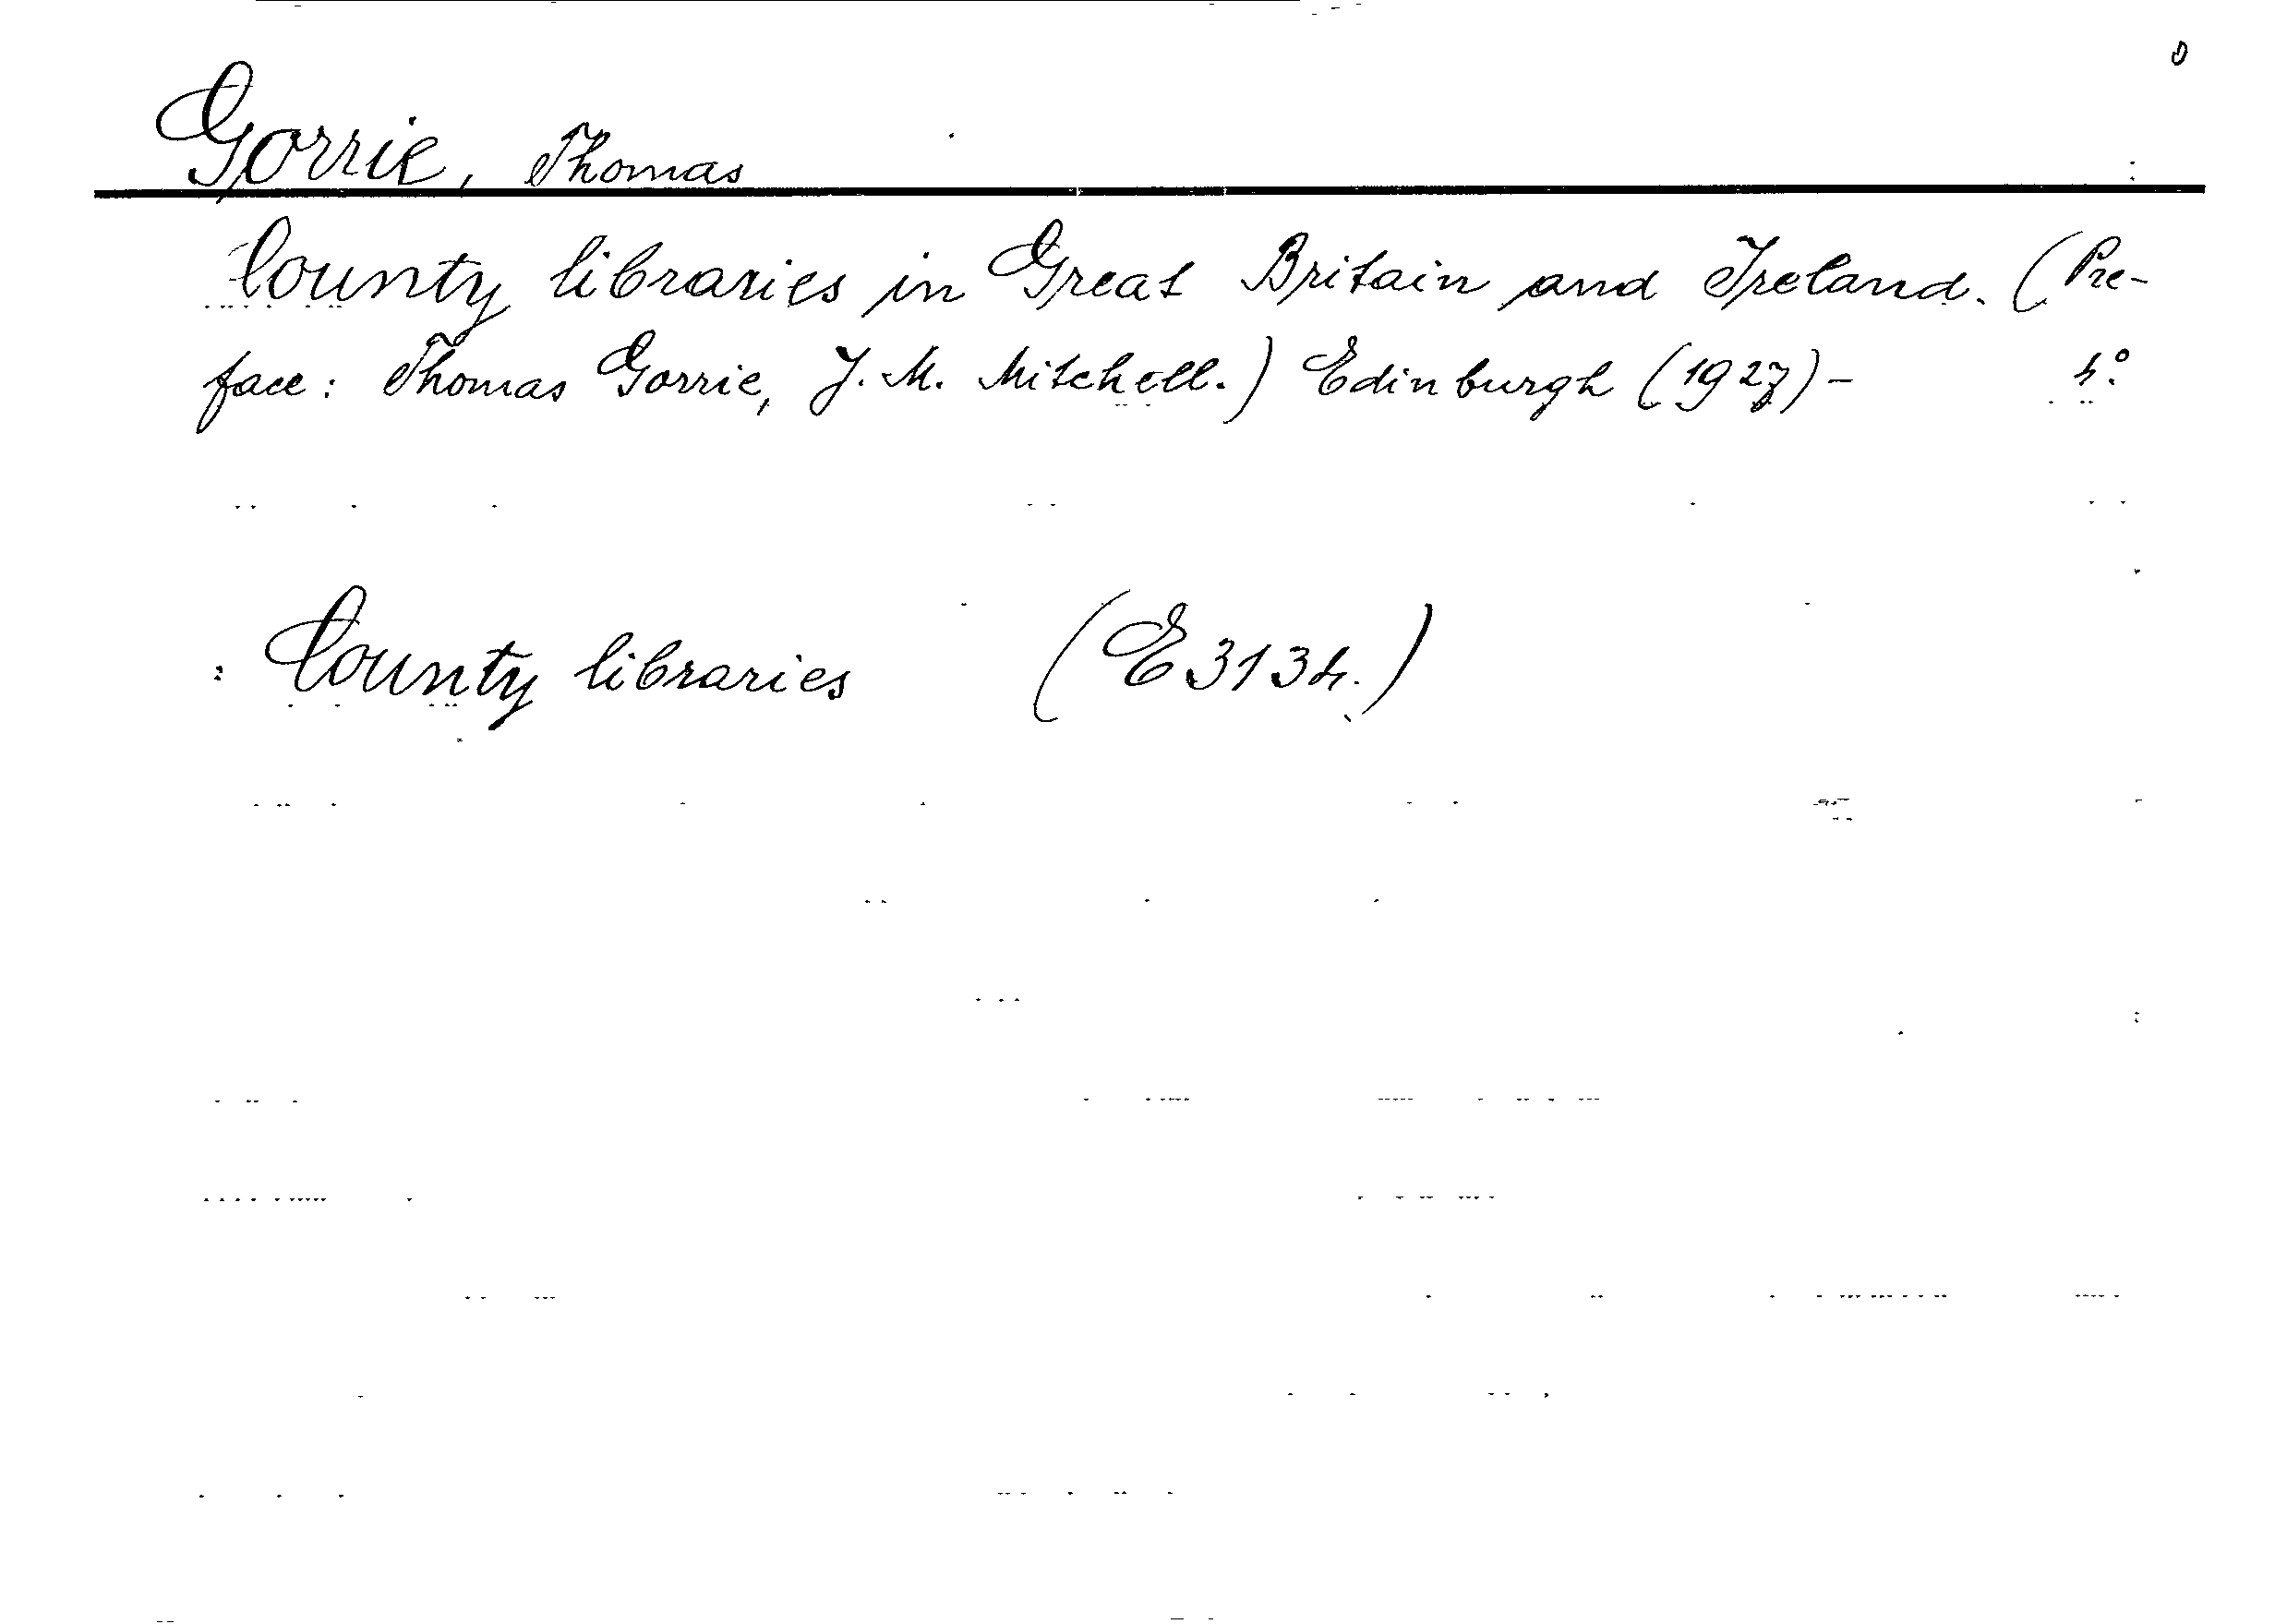 Gorrie, Thomas
County libraries in Great Britain and Ireland. (Pre-
face: Thomas Gorrie, J. M. Mitchell.) Edinburgh (1927)- 4:o
: County libraries (E 3134.)